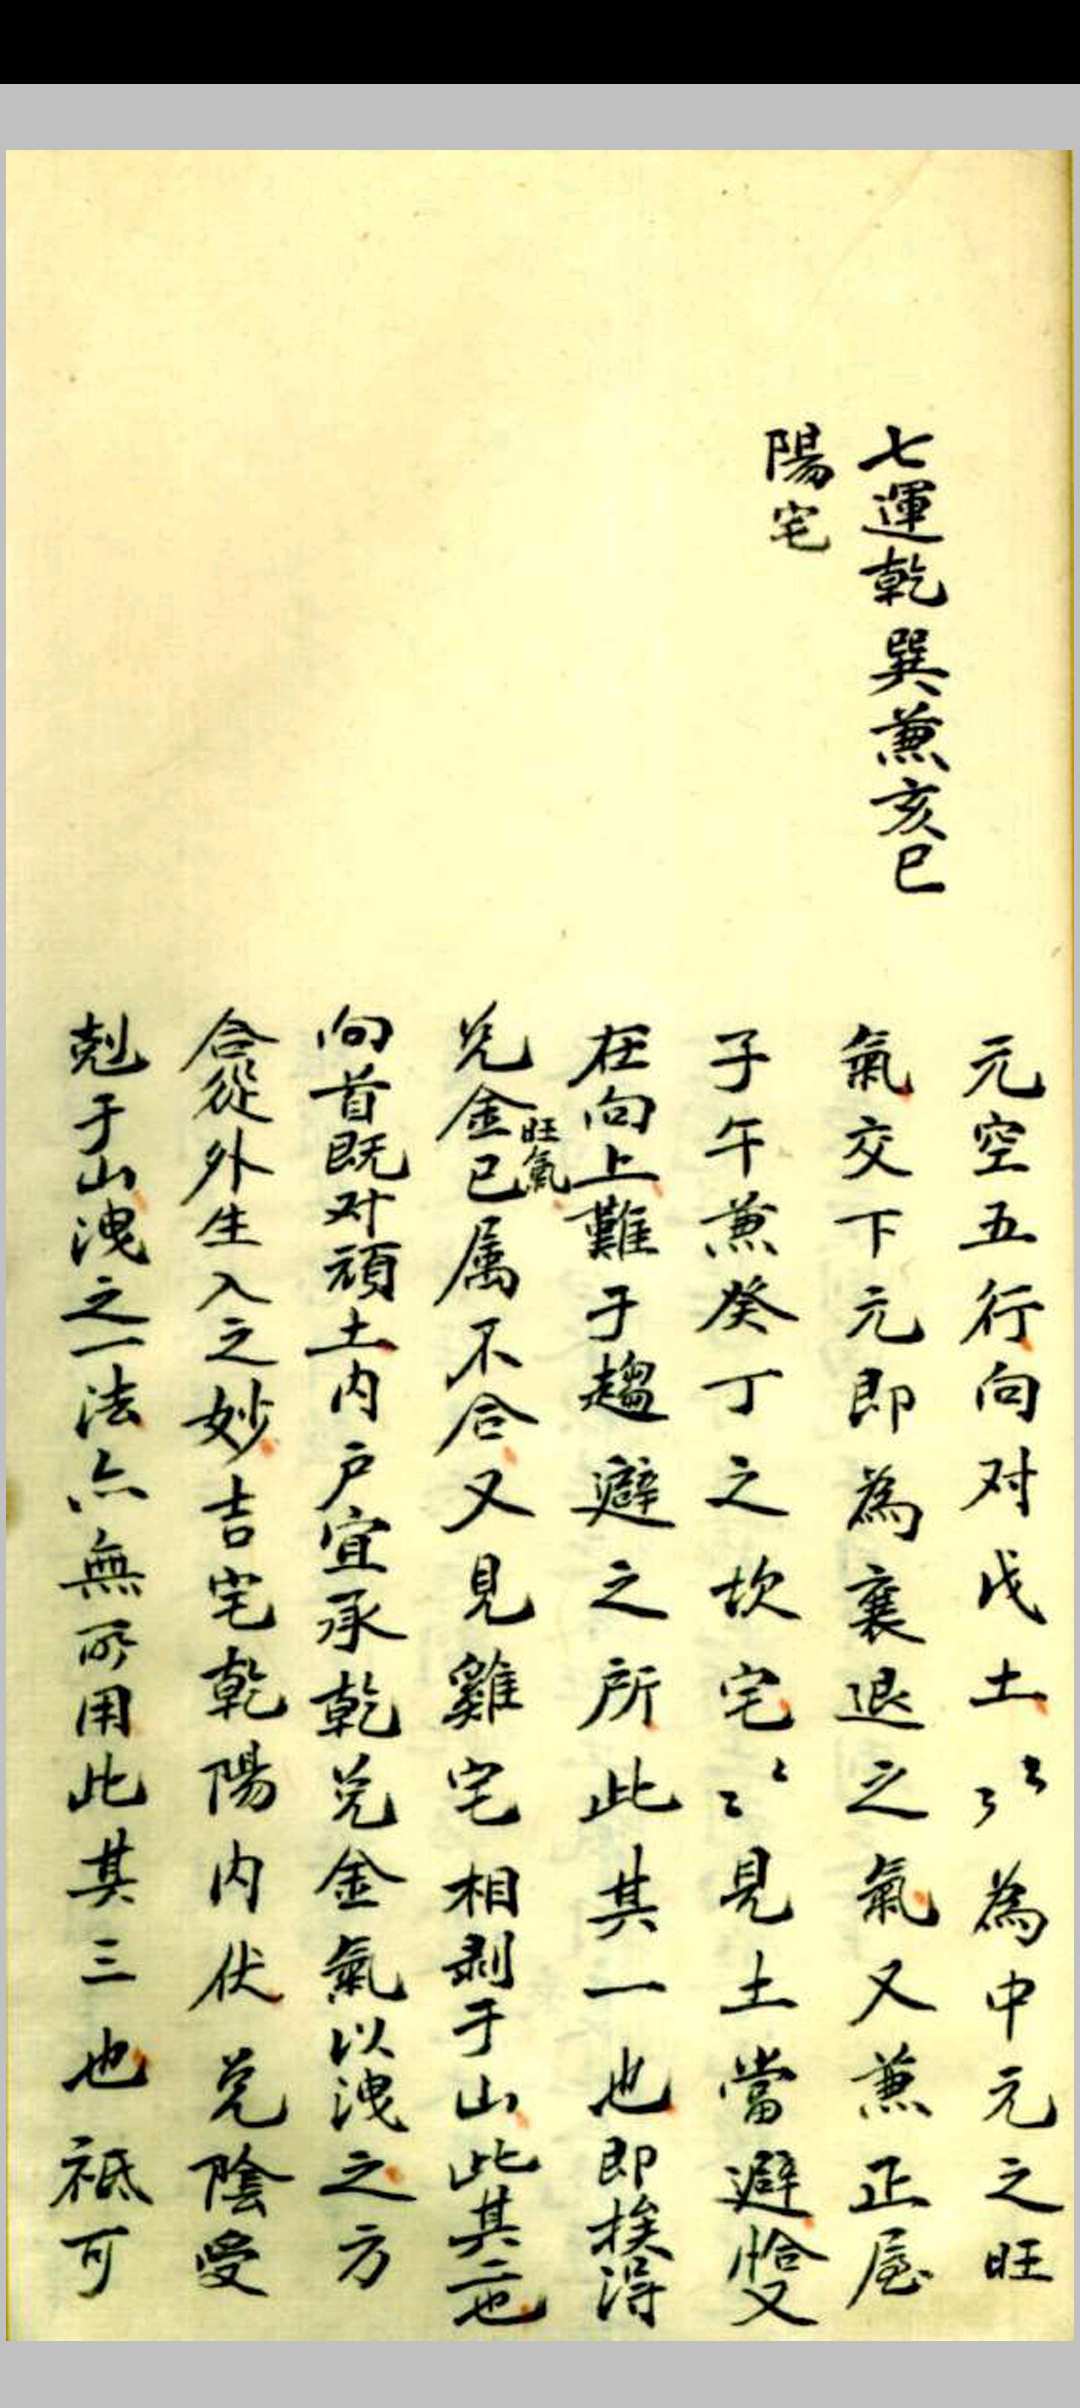 七運乾巽兼亥巳
陽宅
元空五行向对戊土々々為中元之旺
氣交下元即為衰退之氣又兼正屋
子午兼癸丁之坎宅々々見土當避恰又
在向上難于趨避之所此其一也即挨得
兑金旺氣已属不合又見雞宅相剥于山此其二也
向首既对頑土内户宜承乾兑金氣以洩之方
合從外生入之妙吉宅乾陽内伏兑陰受
剋于山洩之一法亦無所用此其三也祗可